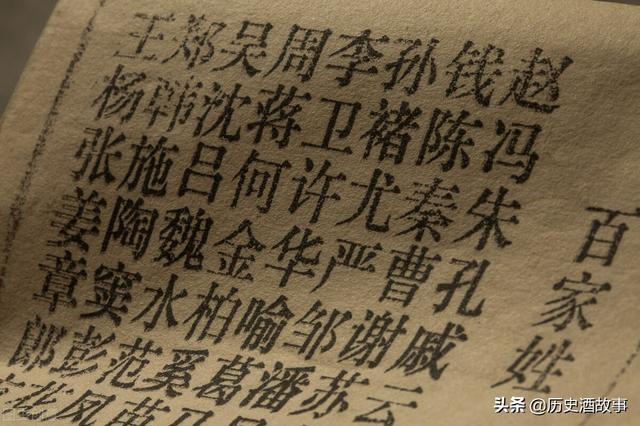 百家姓
赵钱孙李周吴郑王
冯陈褚卫蒋沈韩杨
朱秦尤许何吕施张
孔曹严华金魏陶姜
戚谢邹喻柏水窦章
云苏潘葛奚范彭郎
马苗凤花
头条 @历史酒故事